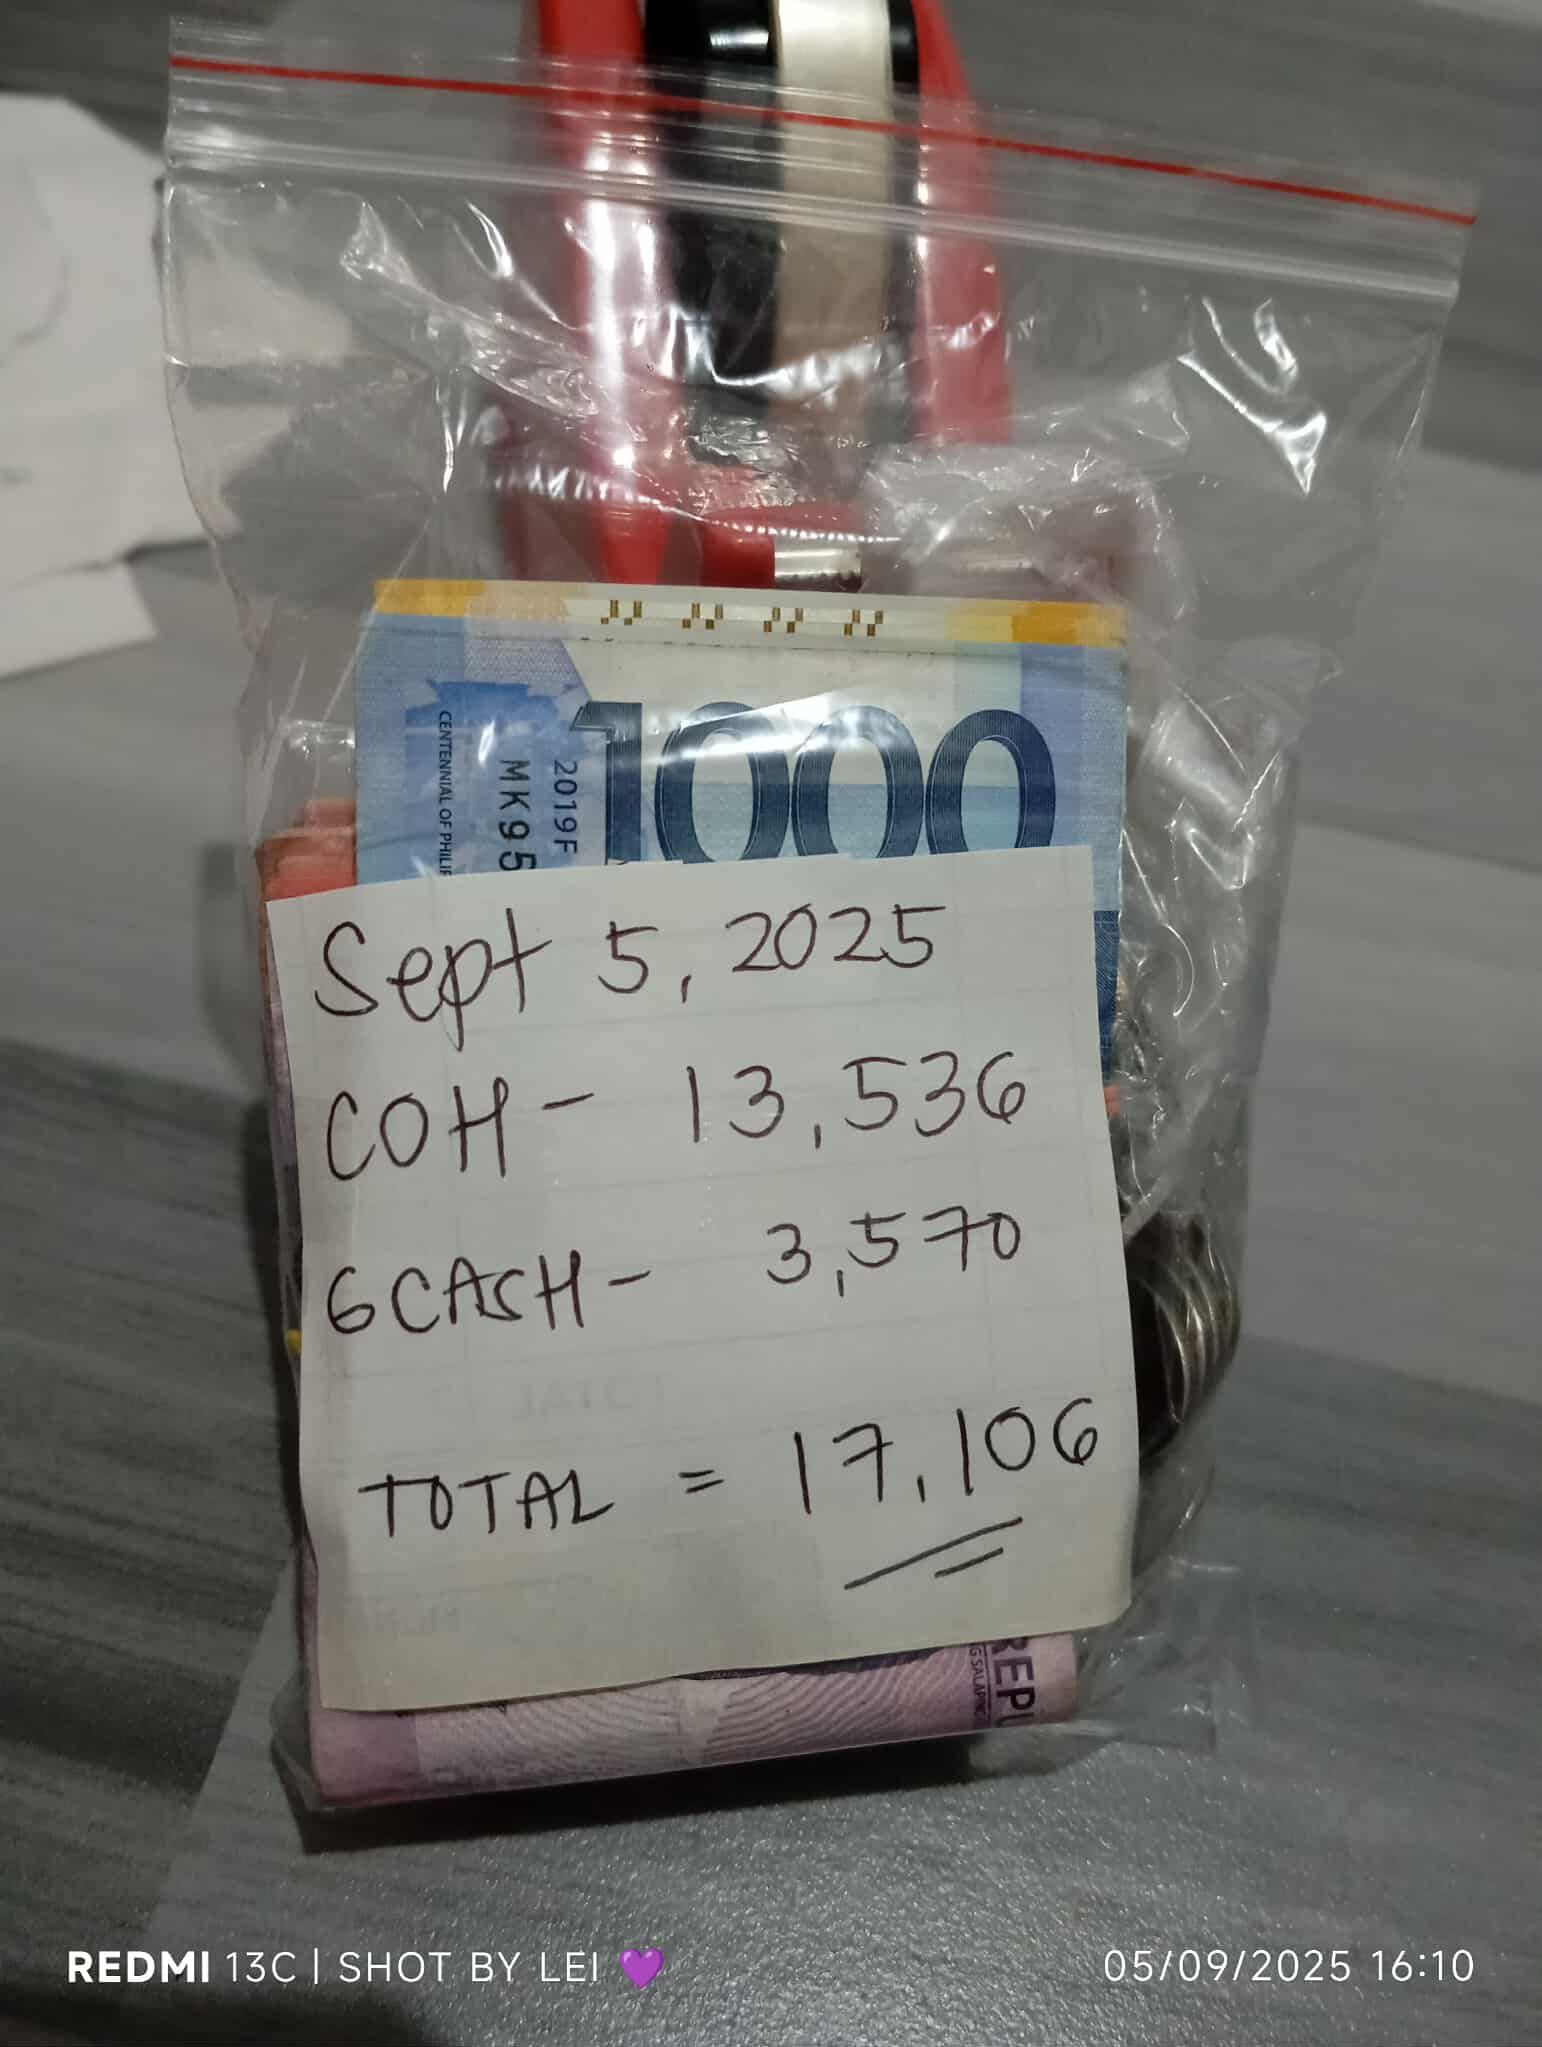 1000
CENTENNIAL OF PHILIP
MK95
2019F
Sept 5, 2025
COH - 13,536
GCASH - 3,570
TOTAL = 17,106
REPU
REDMI 13C | SHOT BY LEI 💜
05/09/2025 16:10